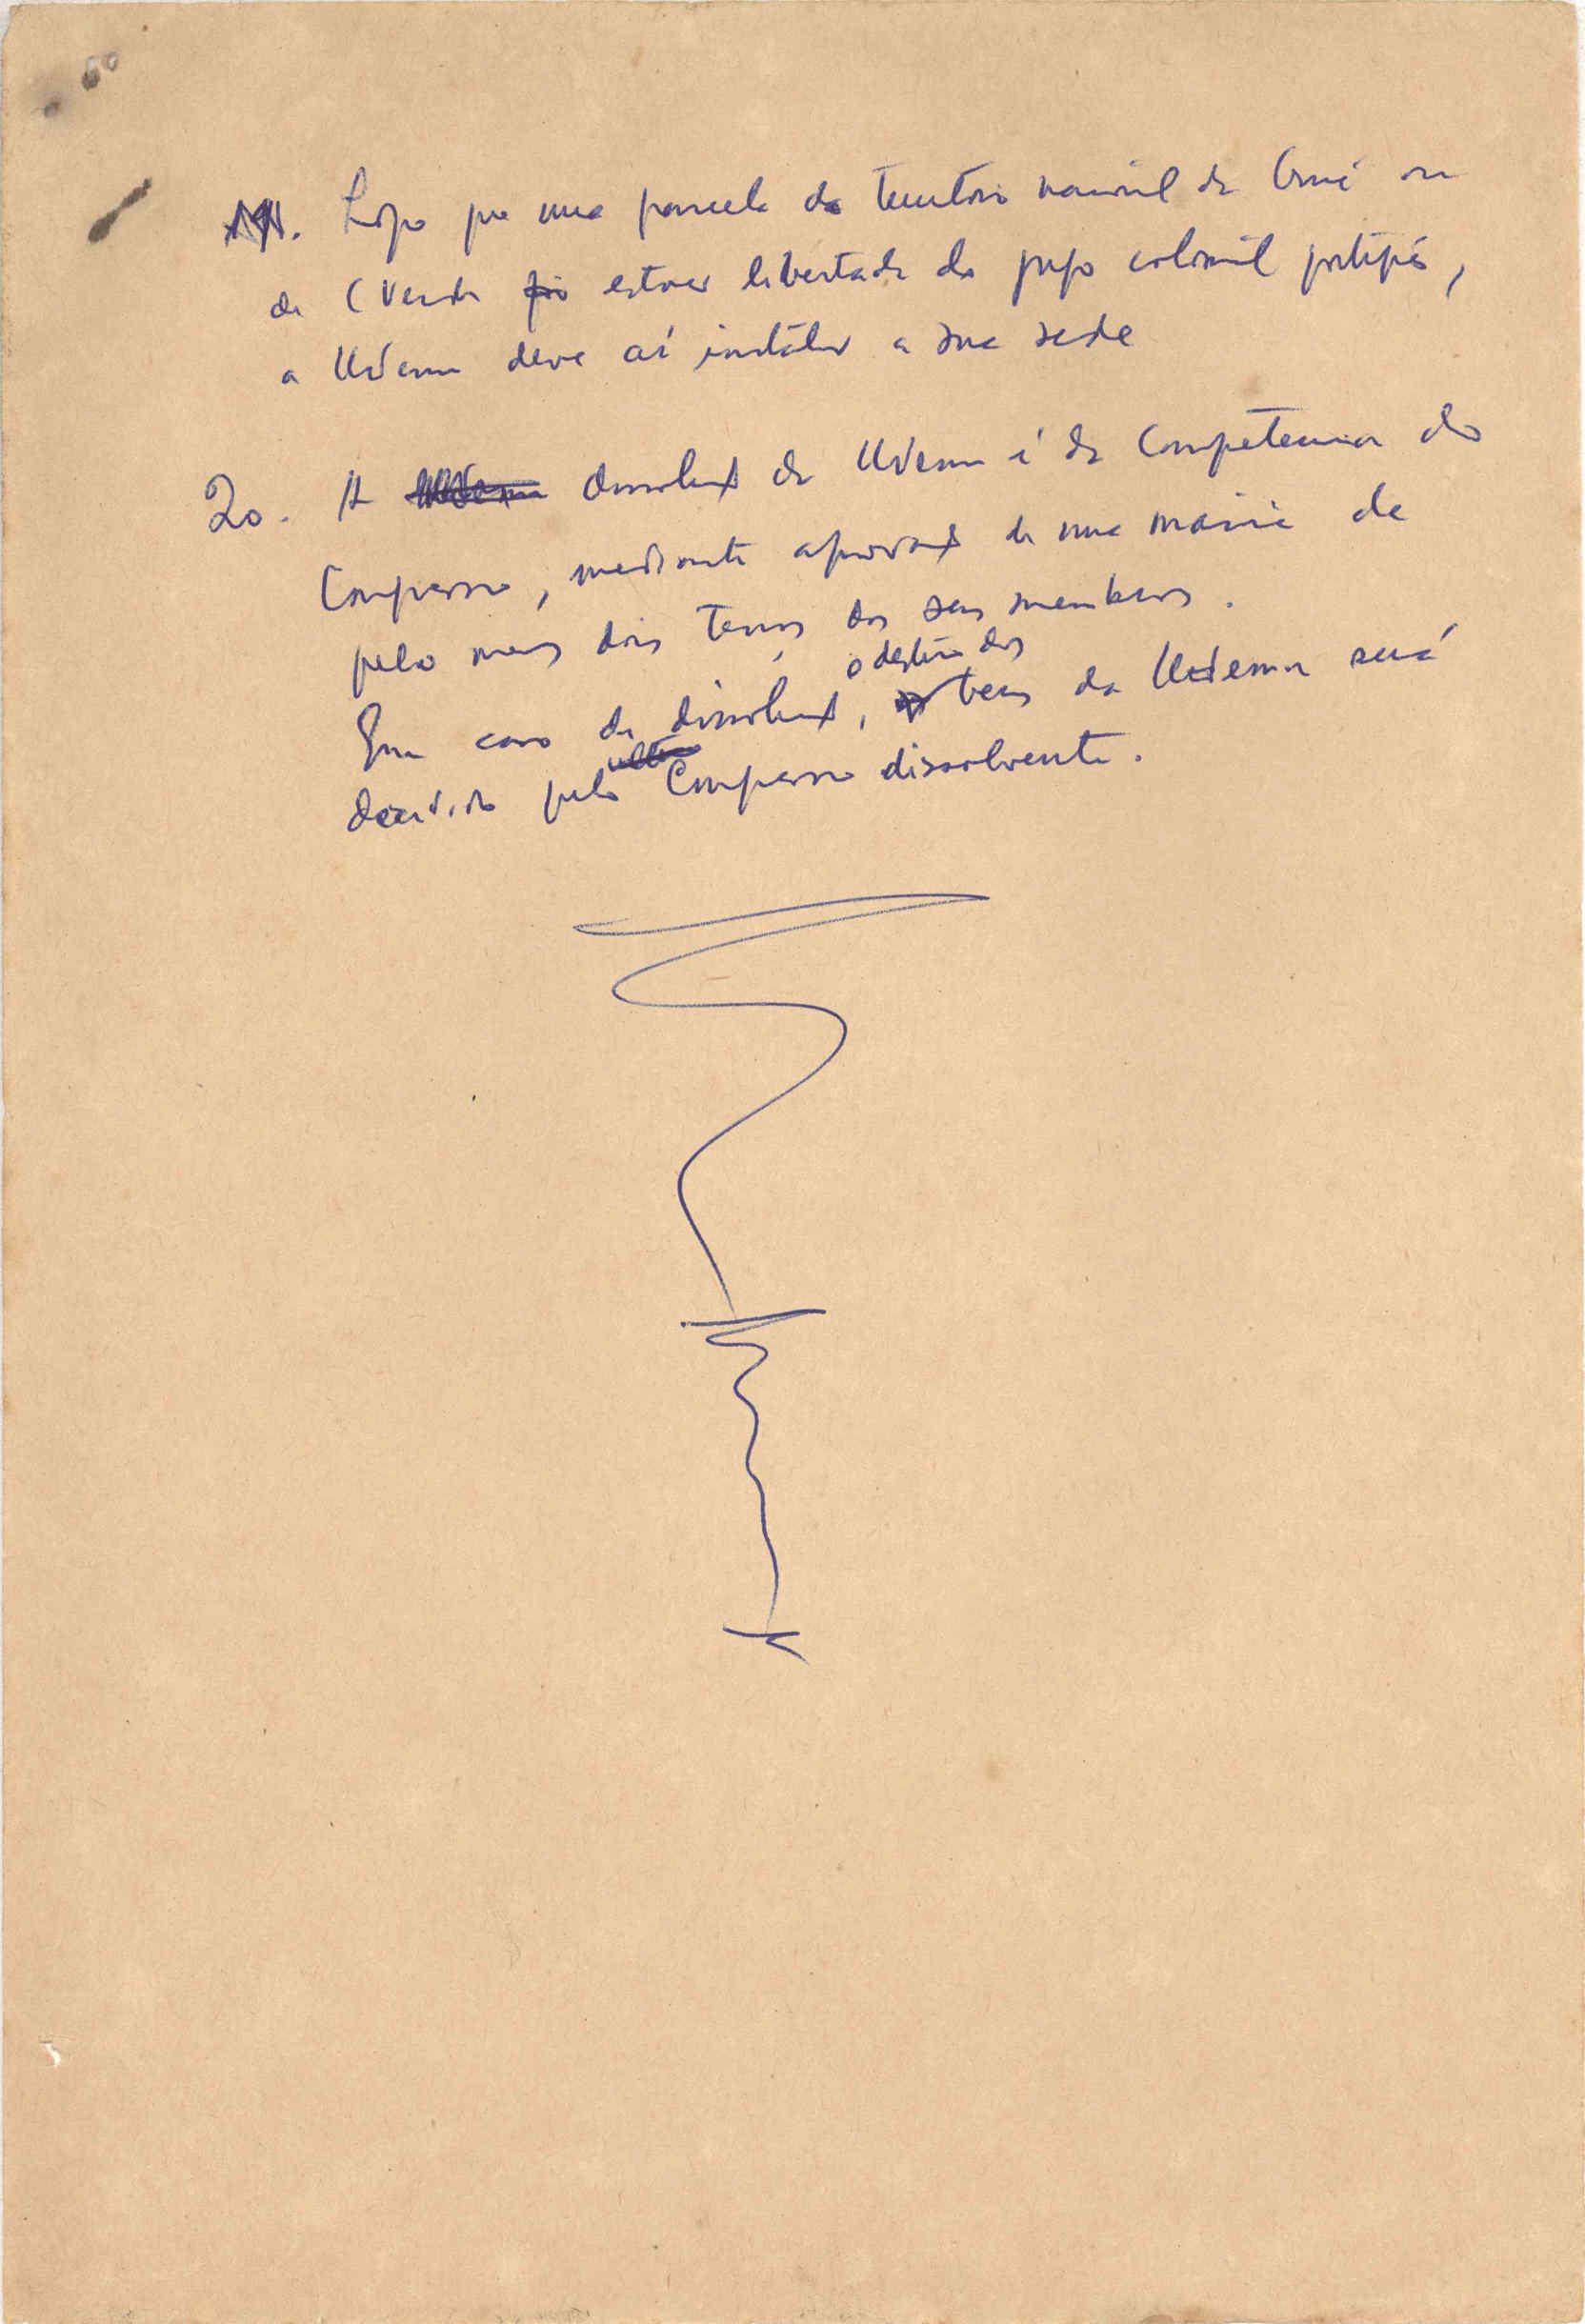 Logo que uma parcela do território nacional da Guiné ou
de C Verde estiver libertada do jugo colonial português,
a Udemu deve aí instalar a sua sede
20. A dissolução da Udemu é da competência do
Congresso, mediante aprovação de uma maioria de
pelo menos dois terços dos seus membros.
o destino dos
Em caso de dissolução, bens da Udemu será
decidido pelo Congresso dissolvente.